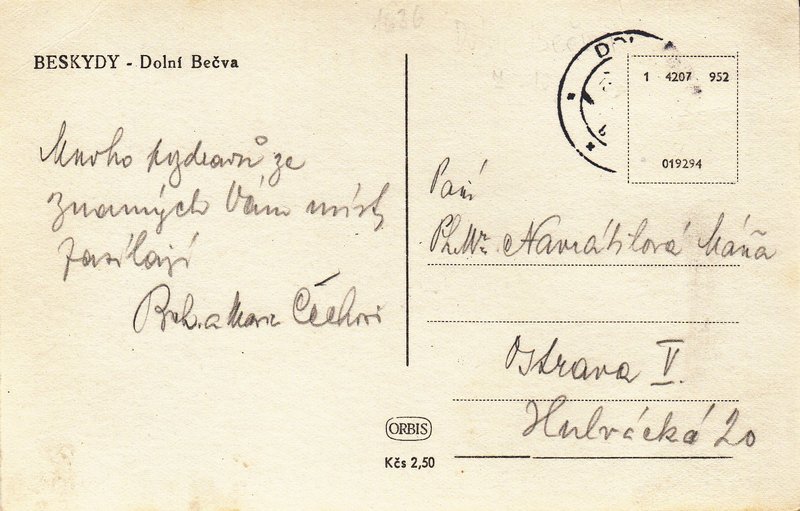 BESKYDY - Dolní Bečva
Mnoho pozdravů ze
známých Vám míst
zasílají
Boh. a Marie Čechovi
DOL
1 4207 952
019294
Paní
Ph.Mr. Navrátilová Máňa
Ostrava V.
Hulvácká 20
ORBIS
Kčs 2,50